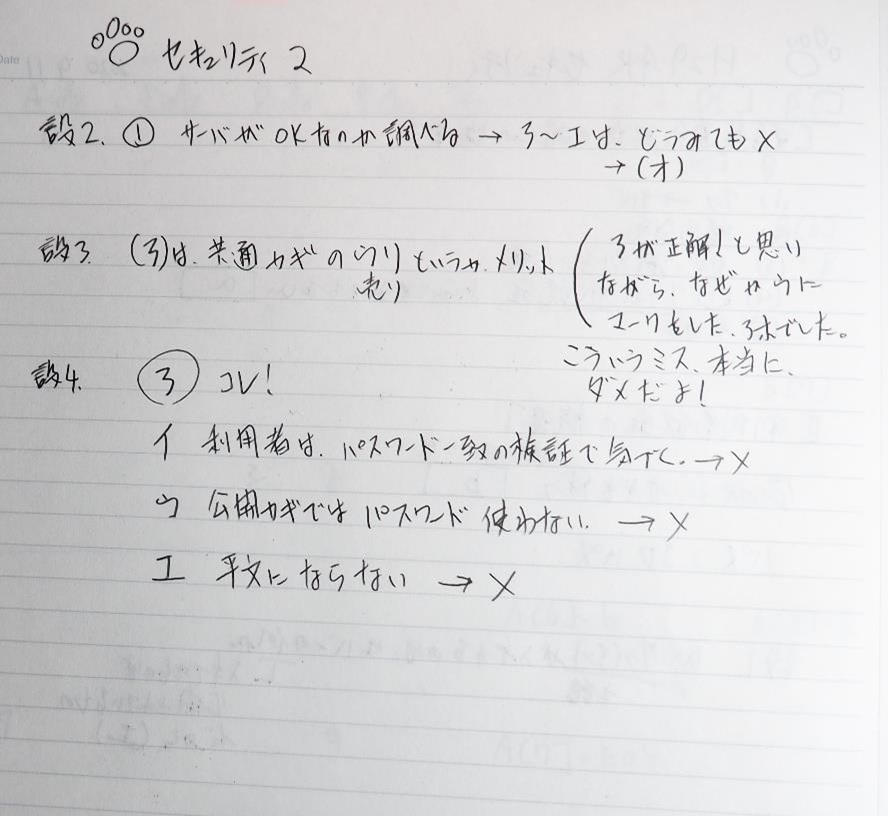 Date
セキュリティ2
設2. ① サーバがOKなのか調べる → ア～エは、どうみても×
→(オ)
設3. (ア)は、共通カギのウリというか、メリット
売り
アが正解!と思い
ながら、なぜかウに
マークをした、アホでした。
こういうミス、本当に、
ダメだよ!
設4. ア コレ!
イ 利用者は、パスワード一致の検証で気づく。→×
ウ 公開カギではパスワード使わない。→×
エ 平文にならない →×